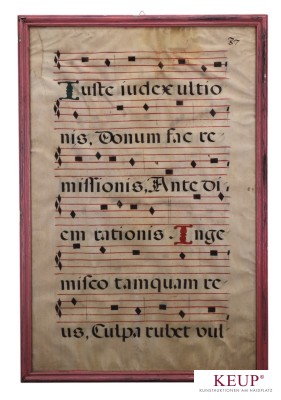 87
Iuste iudex ultio
nis, Donum fac re
missionis, Ante di
em rationis. Inge
misco tamquam re
us, Culpa rubet vul
KEUP®
KUNSTAUKTIONEN AM HAIDPLATZ